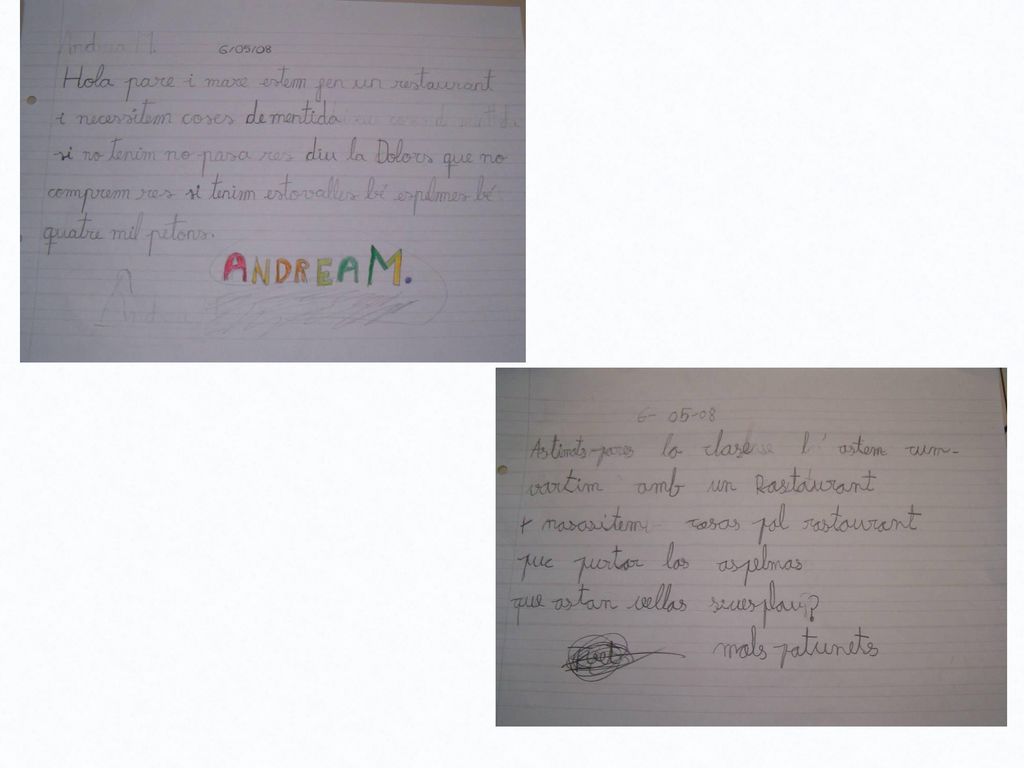 Andrea M. 6/05/08
Hola pare i mare estem fen un restaurant
i necessitem coses de mentida
si no tenim no pasa res diu la Dolors que no
comprem res si tenim estovalles bé espelmes bé
quatre mil petons.
ANDREA M.
Andrea
6-05-08
Astimats pares la clase l'astem cum-
vartim amb un Rastaurant
i nasasitem cosas pal rastaurant
puc purtar las aspelmas
que astan vellas siusplau?
mols patunets